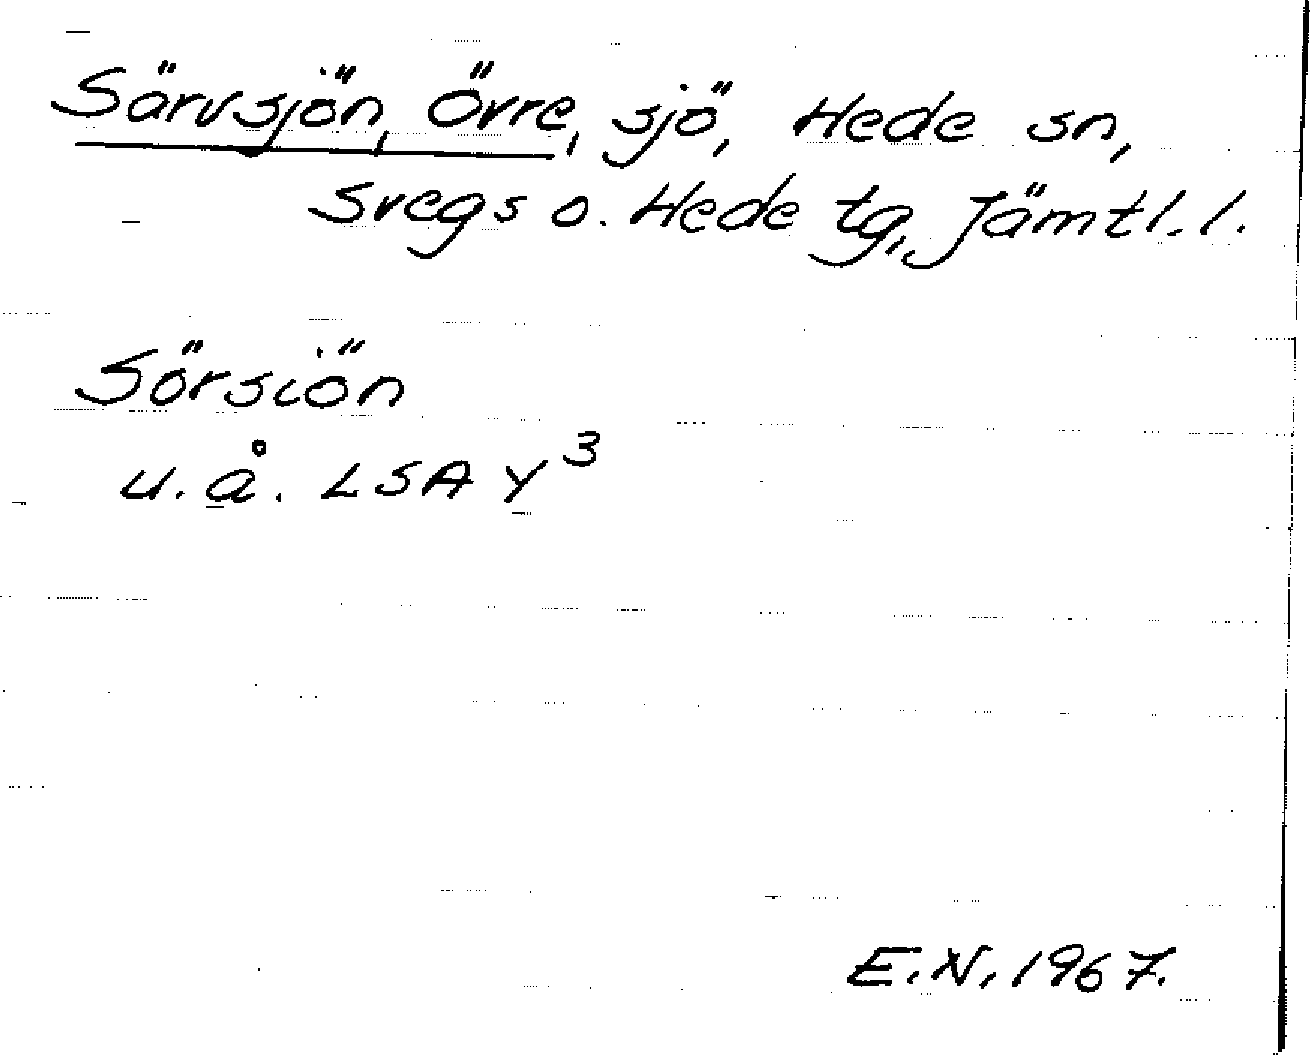 Särvsjön, Övre, sjö, Hede sn,
Svegs o. Hede tg, Jämtl. l.
Sörsiön
u. å. LSA Y³
E. N. 1967.